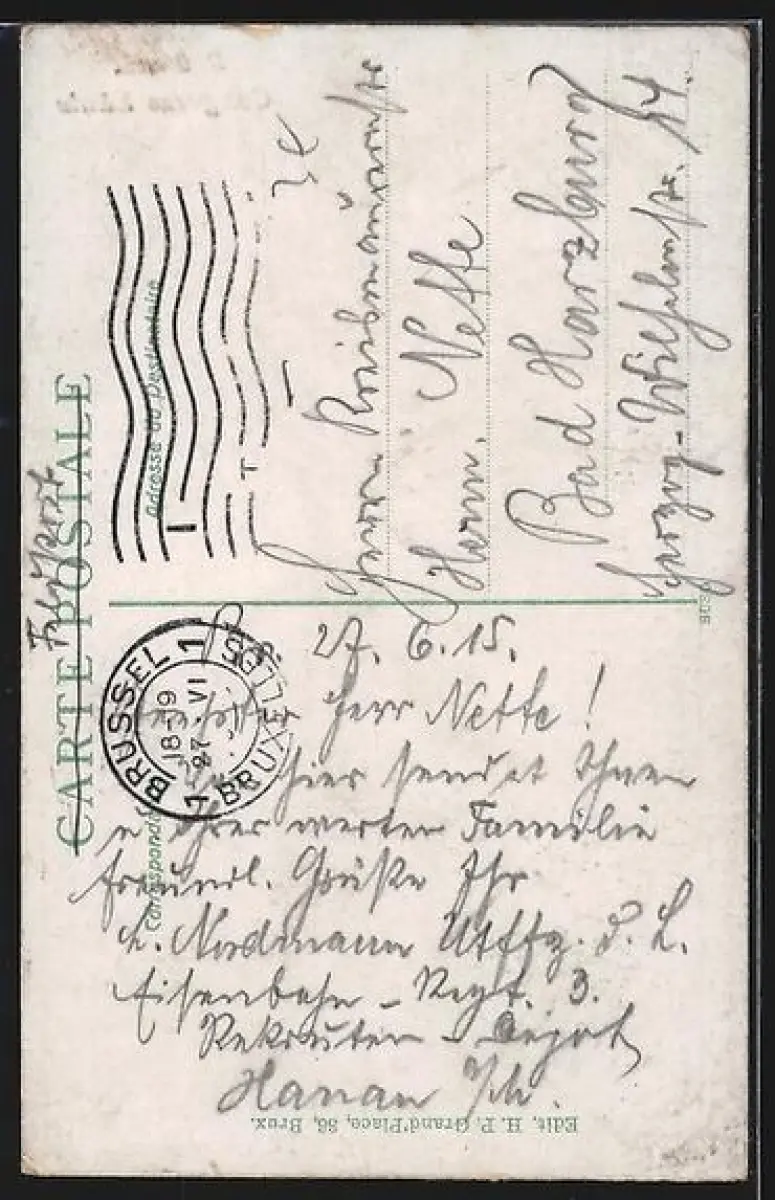 CARTE POSTALE
Feldpost
Correspondance
Adresse du Destinataire
BRUSSEL 1
18-19
27 VI
1 BRUXELLES
B. 27. 6. 15.
Herr Nette!
Von hier sendet Ihnen
u Ihrer werten Familie
freundl. Grüße Ihr
H. Nordmann Utffz. d. L.
Eisenbahn-Regt. 3.
Rekruten-Depot
Hanau a/M.
Herrn
Herm. Nette
Bad Harzburg
Herzog-Wilhelmstr. 14.
Edit. H. P. Grand'Place, 36, Brux.